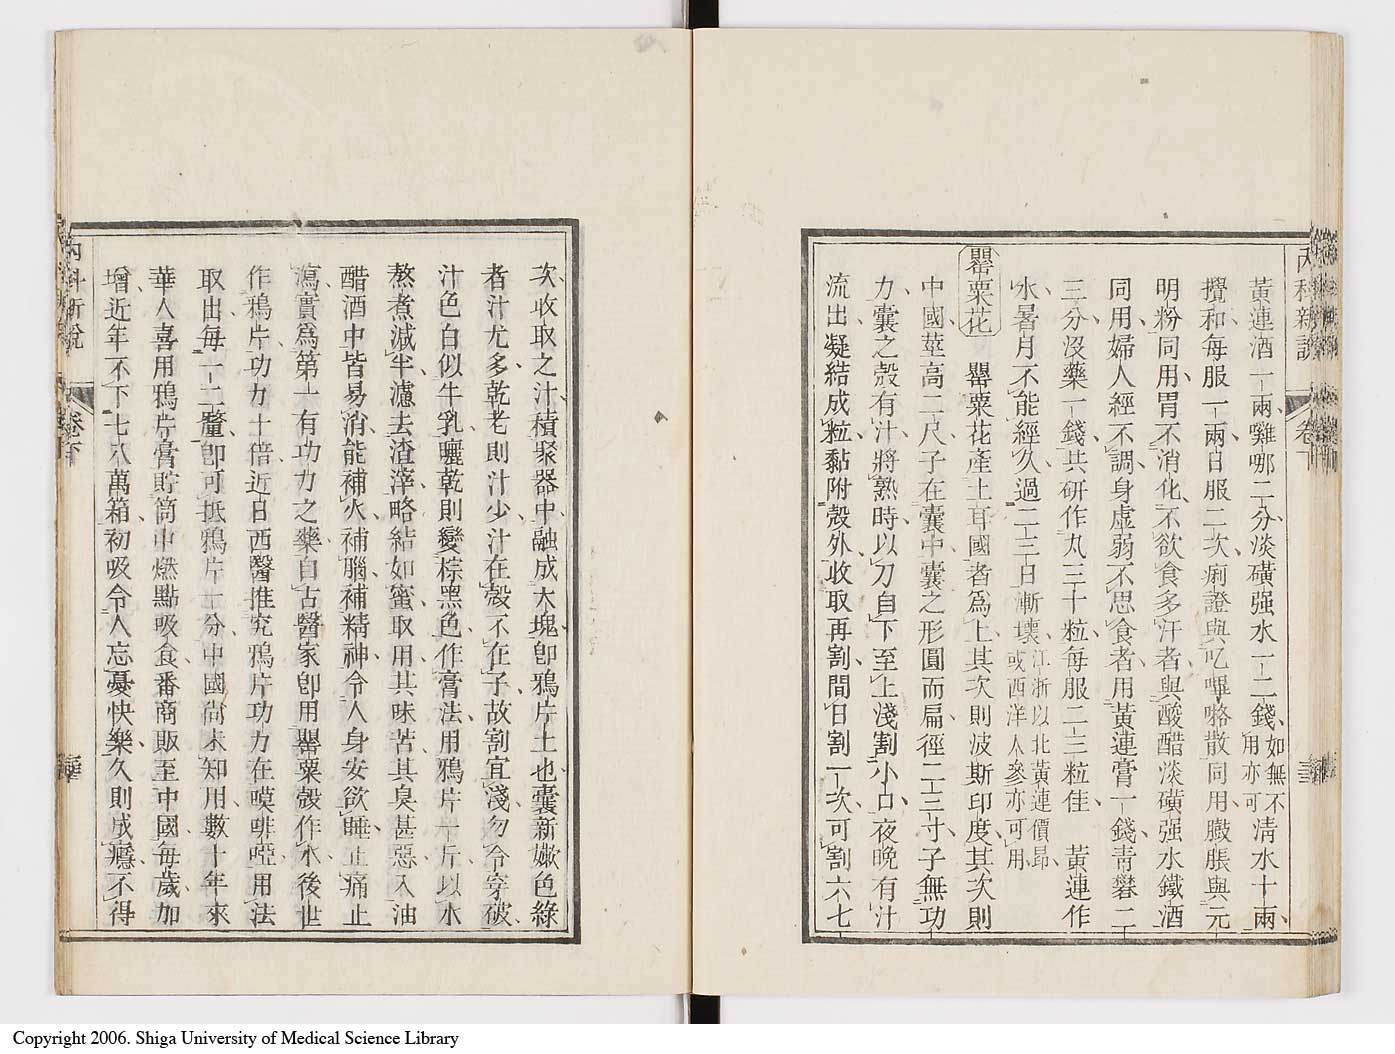 內科新說
卷下
黃連酒一兩囉哪二分淡磺强水一二錢如無不用亦可淸水十兩
攪和每服一兩日服二次痢證與叱嗶咯散同用臌脹與元
明粉同用胃不消化不欲食多汗者與酸醋淡磺强水鐵酒
同用婦人經不調身虛弱不思食者用黃連膏一錢靑礬二
三分沒藥一錢共硏作丸三十粒每服二三粒佳　黃連作
水暑月不能經久過二三日漸壞江浙以北黃連價昂或西洋人參亦可用
罌粟花　罌粟花產土耳國者爲上其次則波斯印度其次則
中國莖高二尺子在囊中囊之形圓而扁徑二三寸子無功
力囊之殼有汁將熟時以刀自下至上淺割小口夜晚有汁
流出凝結成粒黏附殼外收取再割間日割一次可割六七
次收取之汁積聚器中融成大塊卽鴉片土也囊新嫩色綠
者汁尤多乾老則汁少汁在殼不在子故割宜淺勿令穿破
汁色白似牛乳曬乾則變棕黑色作膏法用鴉片十斤以水
熬煮減半濾去渣滓略結如蜜取用其味苦其臭甚惡入油
醋酒中皆易消能補火補腦補精神令人身安欲睡止痛止
瀉實爲第一有功力之藥自古醫家卽用罌粟殼作水後世
作鴉片功力十倍近日西醫推究鴉片功力在嗼啡啞用法
取出每一二釐卽可抵鴉片十分中國尙未知用數十年來
華人喜用鴉片膏貯筒中燃點吸食番商販至中國每歲加
增近年不下七八萬箱初吸令人忘憂快樂久則成癮不得
內科新說
卷下
Copyright 2006. Shiga University of Medical Science Library